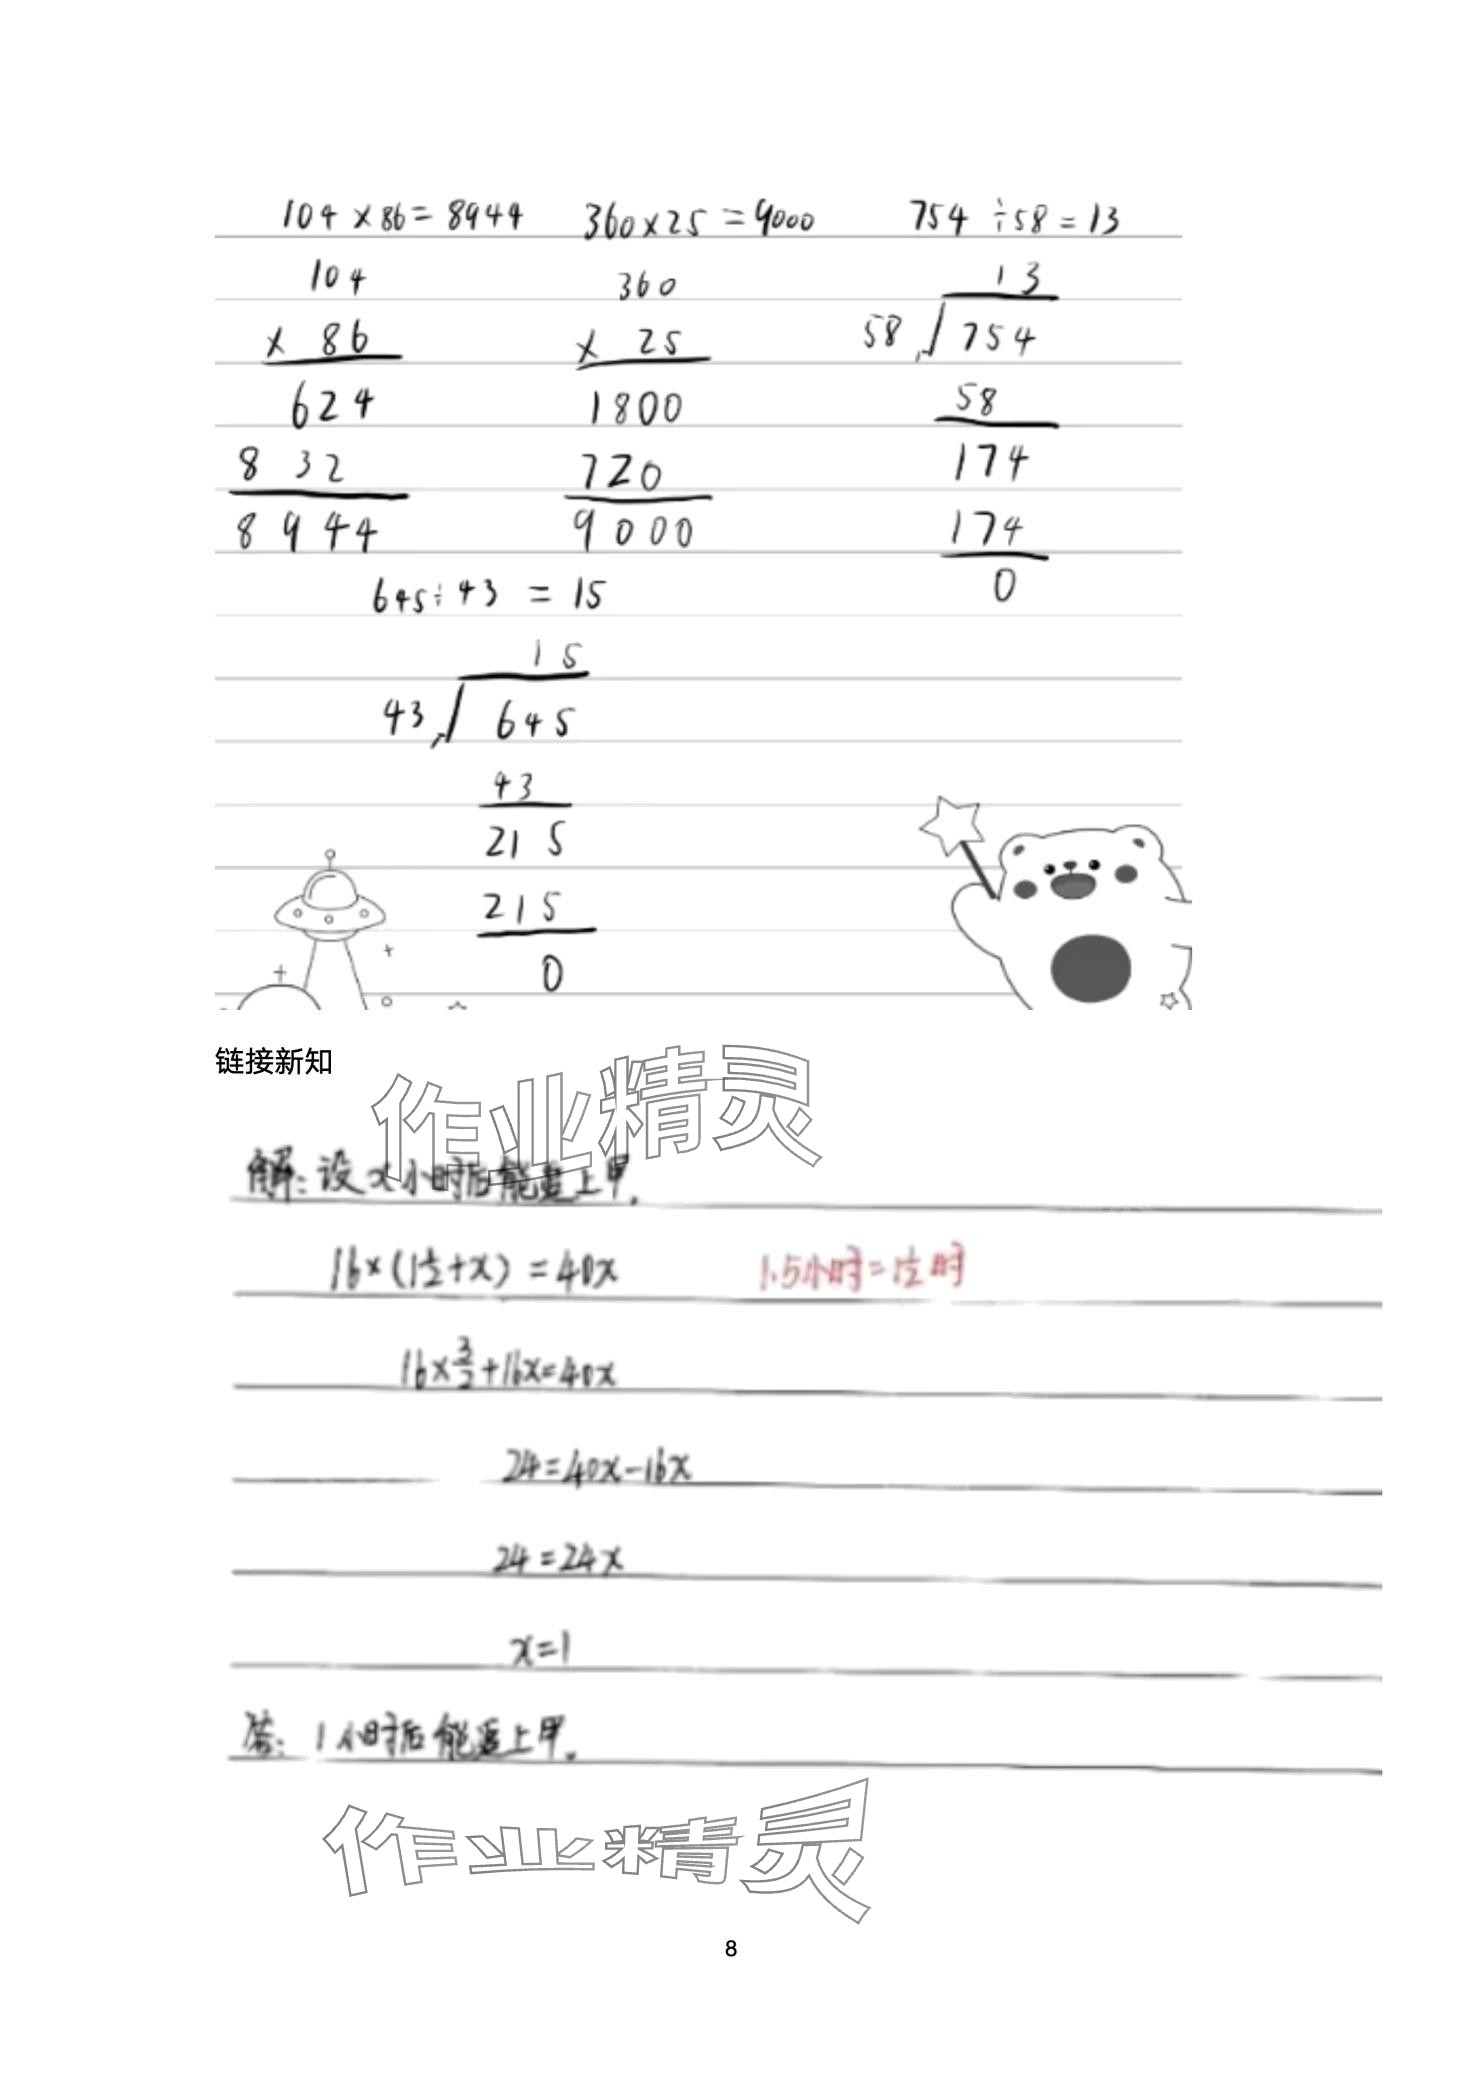 104×86=8944 360×25=9000 754÷58=13
104 360 13
× 86 × 25 58 754
624 1800 58
832 720 174
8944 9000 174
645÷43=15 0
15
43 645
43
215
215
0
链接新知
作业精灵
解:设x小时后能追上甲.
16×(1½+x)=40x 1.5小时=1½时
16×3/2+16x=40x
24=40x-16x
24=24x
x=1
答:1小时后能追上甲.
作业精灵
8